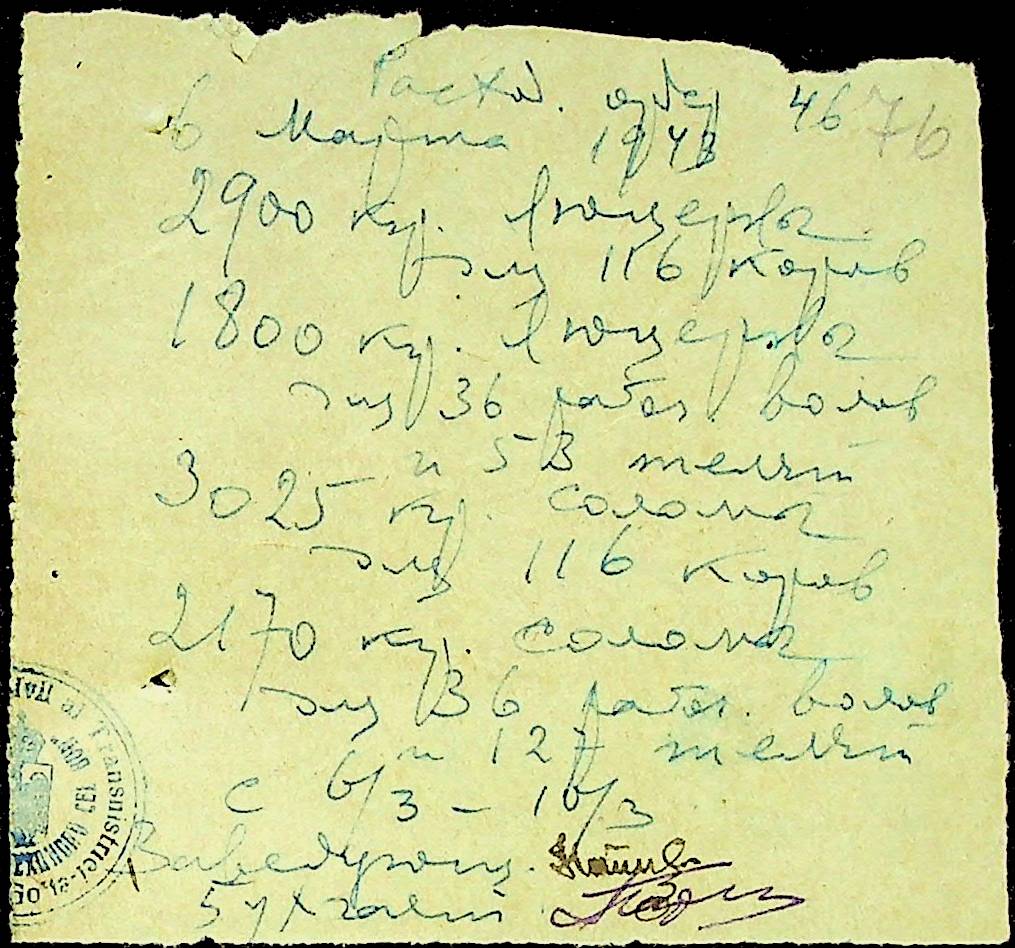 Расход. ордер 46 76
6 Марта 1943
2900 кгр. люцерны
для 116 коров
1800 кгр. люцерны
для 36 рабоч. волов
и 53 телят
3025 кгр. соломы
для 116 коров
2170 кгр. соломы
для 36 рабоч. волов
и 127 телят
с 6/3 – 10/3
Заведующ.
Бухгалт
Transnistriei